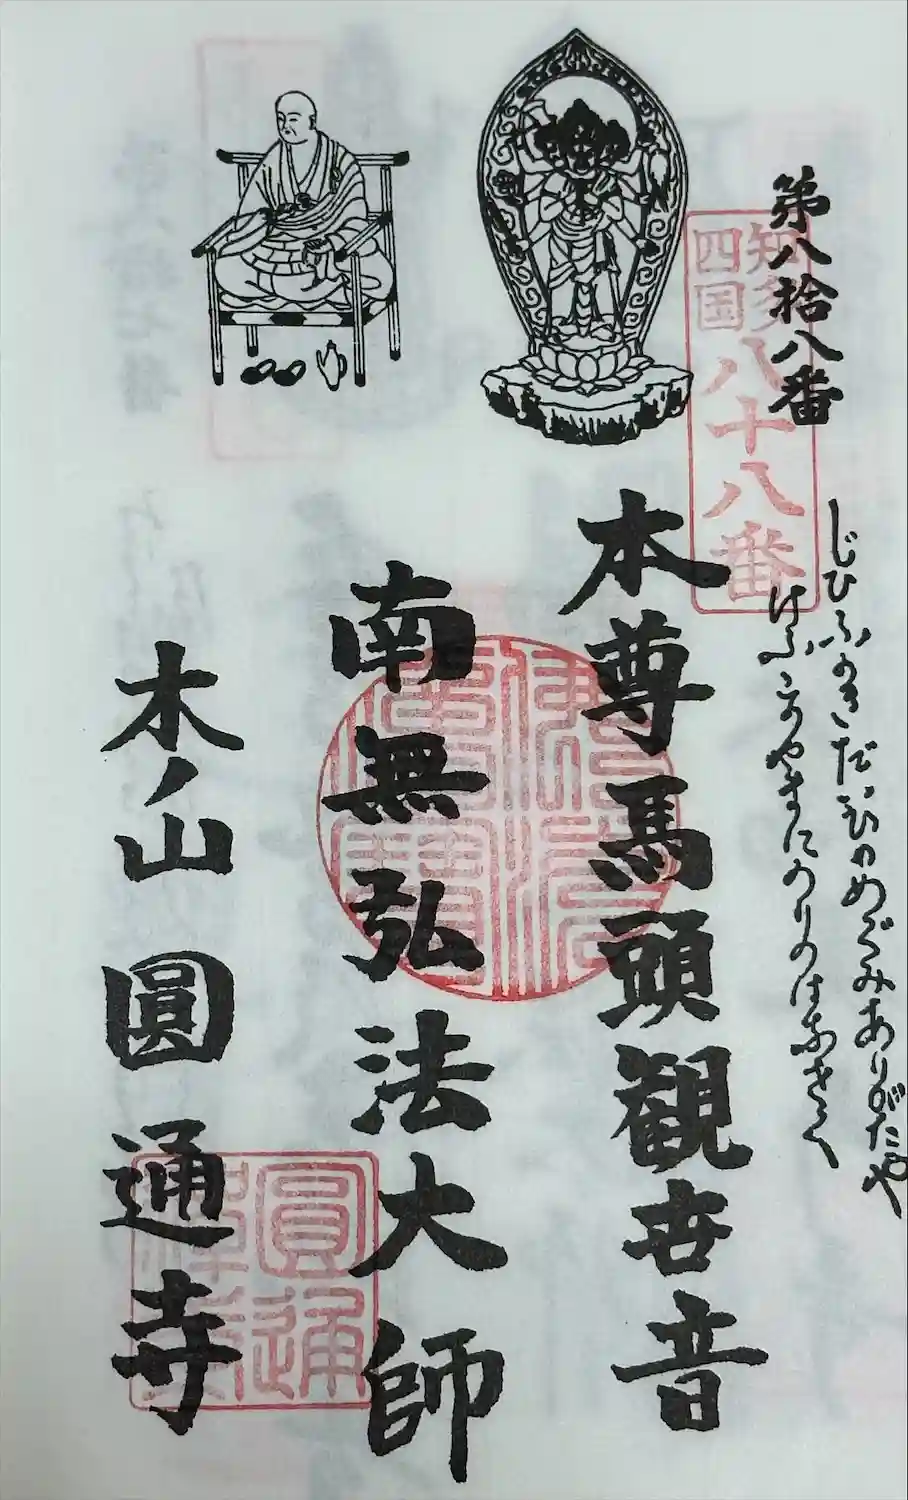 第八拾八番
知多
四国
八十八番
じひふかきだいひのめぐみありがたや
けふこのやまにのりのはなさく
本尊馬頭観世音
南無弘法大師
木ノ山 圓通寺
佛法僧寶
圓通禅寺